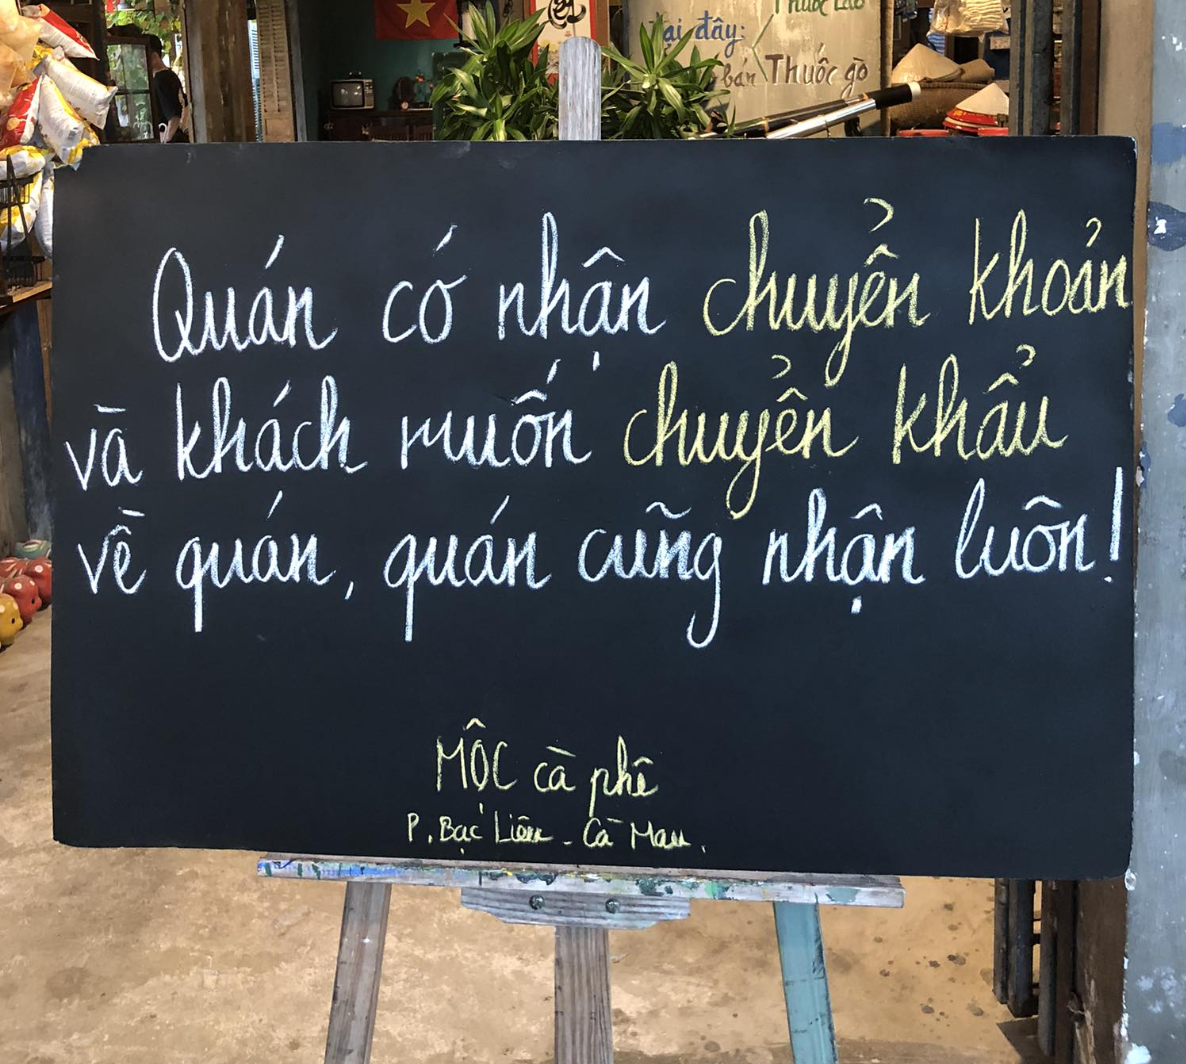 Thuốc Lào
Tại đây:
bán Thuốc gò
Quán có nhận chuyển khoản
và khách muốn chuyển khẩu
về quán, quán cũng nhận luôn!
MỘC cà phê
P. Bạc Liêu - Cà Mau.